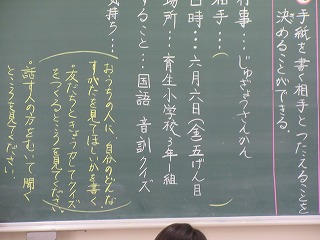 手紙を書く相手とつたえることを
決めることができる。
行事…じゅぎょうさんかん
相手…
日時…六月六日(金)五じげん目
場所…育生小学校3年1組
すること…国語 音訓クイズ
気持ち…
おうちの人に、自分のどんな
すがたを見てほしいかを書く
・友だちときょう力してクイズ
をつくるところを見てください。
・話す人の方をむいて聞く
ところを見てください。